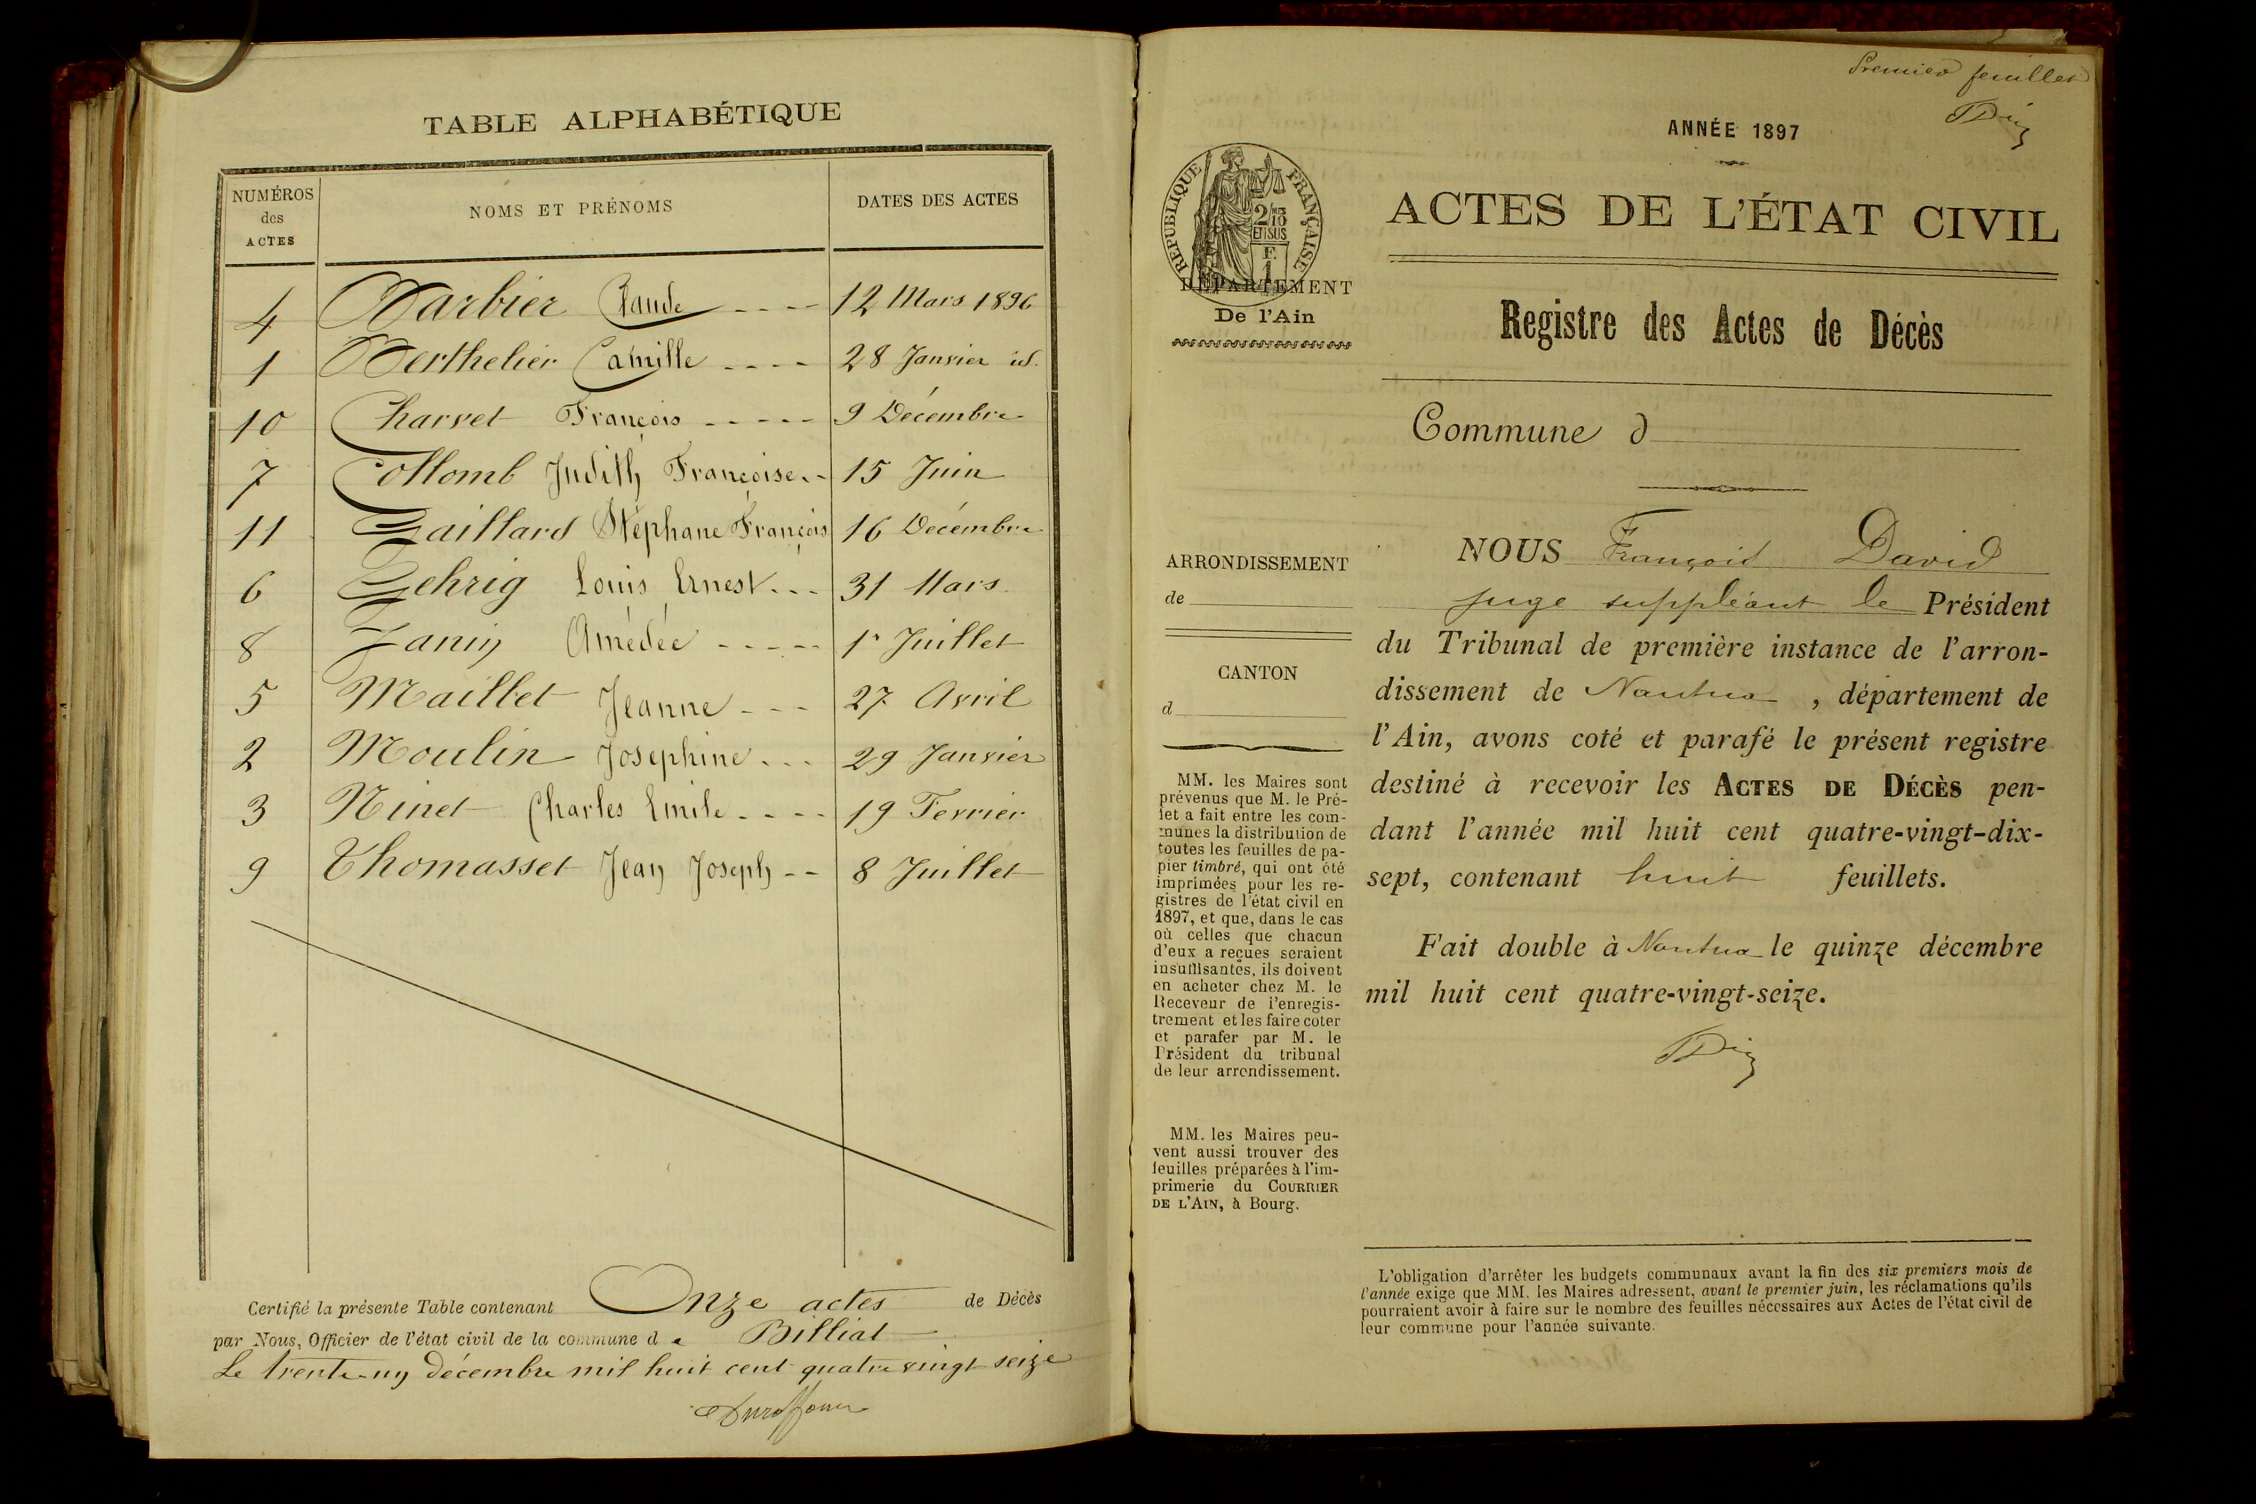 TABLE ALPHABÉTIQUE
NUMÉROS des ACTES
NOMS ET PRÉNOMS
DATES DES ACTES
4 Barbier Claude ---- 12 Mars 1896
1 Berthelier Camille ---- 28 Janvier id.
10 Charvet François ----- 9 Décembre
7 Collomb Judith Françoise -- 15 Juin
11 Gaillard Stéphane François 16 Décembre
6 Gehrig Louis Ernest --- 31 Mars
8 Janin Amédée ----- 1r Juillet
5 Maillet Jeanne --- 27 Avril
2 Moulin Josephine --- 29 Janvier
3 Ninet Charles Emile ---- 19 Fevrier
9 Thomasset Jean Joseph -- 8 Juillet
Certifié la présente Table contenant Onze actes de Décès
par Nous, Officier de l'état civil de la commune de Billiat
Le trente-un décembre mil huit cent quatre vingt seize
Premier feuillet
ANNÉE 1897
RÉPUBLIQUE FRANÇAISE
2/10
ET 1 SUS
F. 1
DÉPARTEMENT
De l'Ain
ACTES DE L'ÉTAT CIVIL
Registre des Actes de Décès
Commune d
ARRONDISSEMENT
de
CANTON
d
MM. les Maires sont
prévenus que M. le Pré-
fet a fait entre les com-
munes la distribution de
toutes les feuilles de pa-
pier timbré, qui ont été
imprimées pour les re-
gistres de l'état civil en
1897, et que, dans le cas
où celles que chacun
d'eux a reçues seraient
insuffisantes, ils doivent
en acheter chez M. le
Receveur de l'enregis-
trement et les faire coter
et parafer par M. le
Président du tribunal
de leur arrondissement.
MM. les Maires peu-
vent aussi trouver des
feuilles préparées à l'im-
primerie du COURRIER
DE L'AIN, à Bourg.
NOUS François David
juge suppléant le Président
du Tribunal de première instance de l'arron-
dissement de Nantua, département de
l'Ain, avons coté et parafé le présent registre
destiné à recevoir les ACTES DE DÉCÈS pen-
dant l'année mil huit cent quatre-vingt-dix-
sept, contenant huit feuillets.
Fait double à Nantua le quinze décembre
mil huit cent quatre-vingt-seize.
L'obligation d'arrêter les budgets communaux avant la fin des six premiers mois de
l'année exige que MM. les Maires adressent, avant le premier juin, les réclamations qu'ils
pourraient avoir à faire sur le nombre des feuilles nécessaires aux Actes de l'état civil de
leur commune pour l'année suivante.